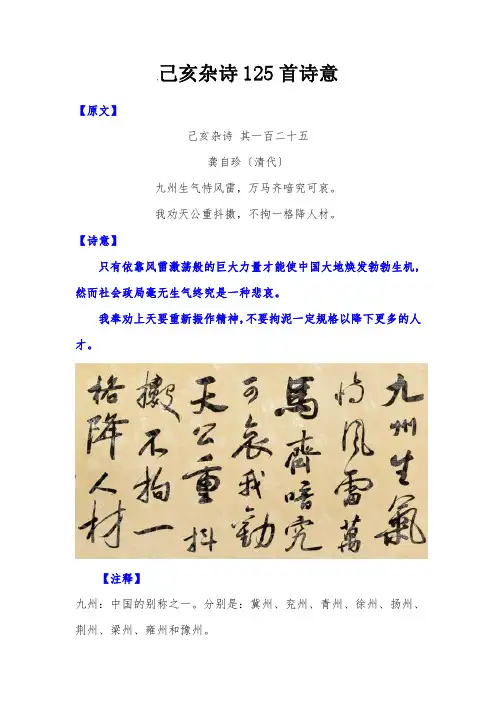 己亥杂诗125首诗意
【原文】
己亥杂诗 其一百二十五
龚自珍〔清代〕
九州生气恃风雷，万马齐喑究可哀。
我劝天公重抖擞，不拘一格降人材。
【诗意】
只有依靠风雷激荡般的巨大力量才能使中国大地焕发勃勃生机，
然而社会政局毫无生气终究是一种悲哀。
我奉劝上天要重新振作精神，不要拘泥一定规格以降下更多的人
才。
九州生氣
恃風雷萬
馬齊喑究
可哀我勸
天公重抖
擻不拘一
格降人材
【注释】
九州：中国的别称之一。分别是：冀州、兖州、青州、徐州、扬州、
荆州、梁州、雍州和豫州。